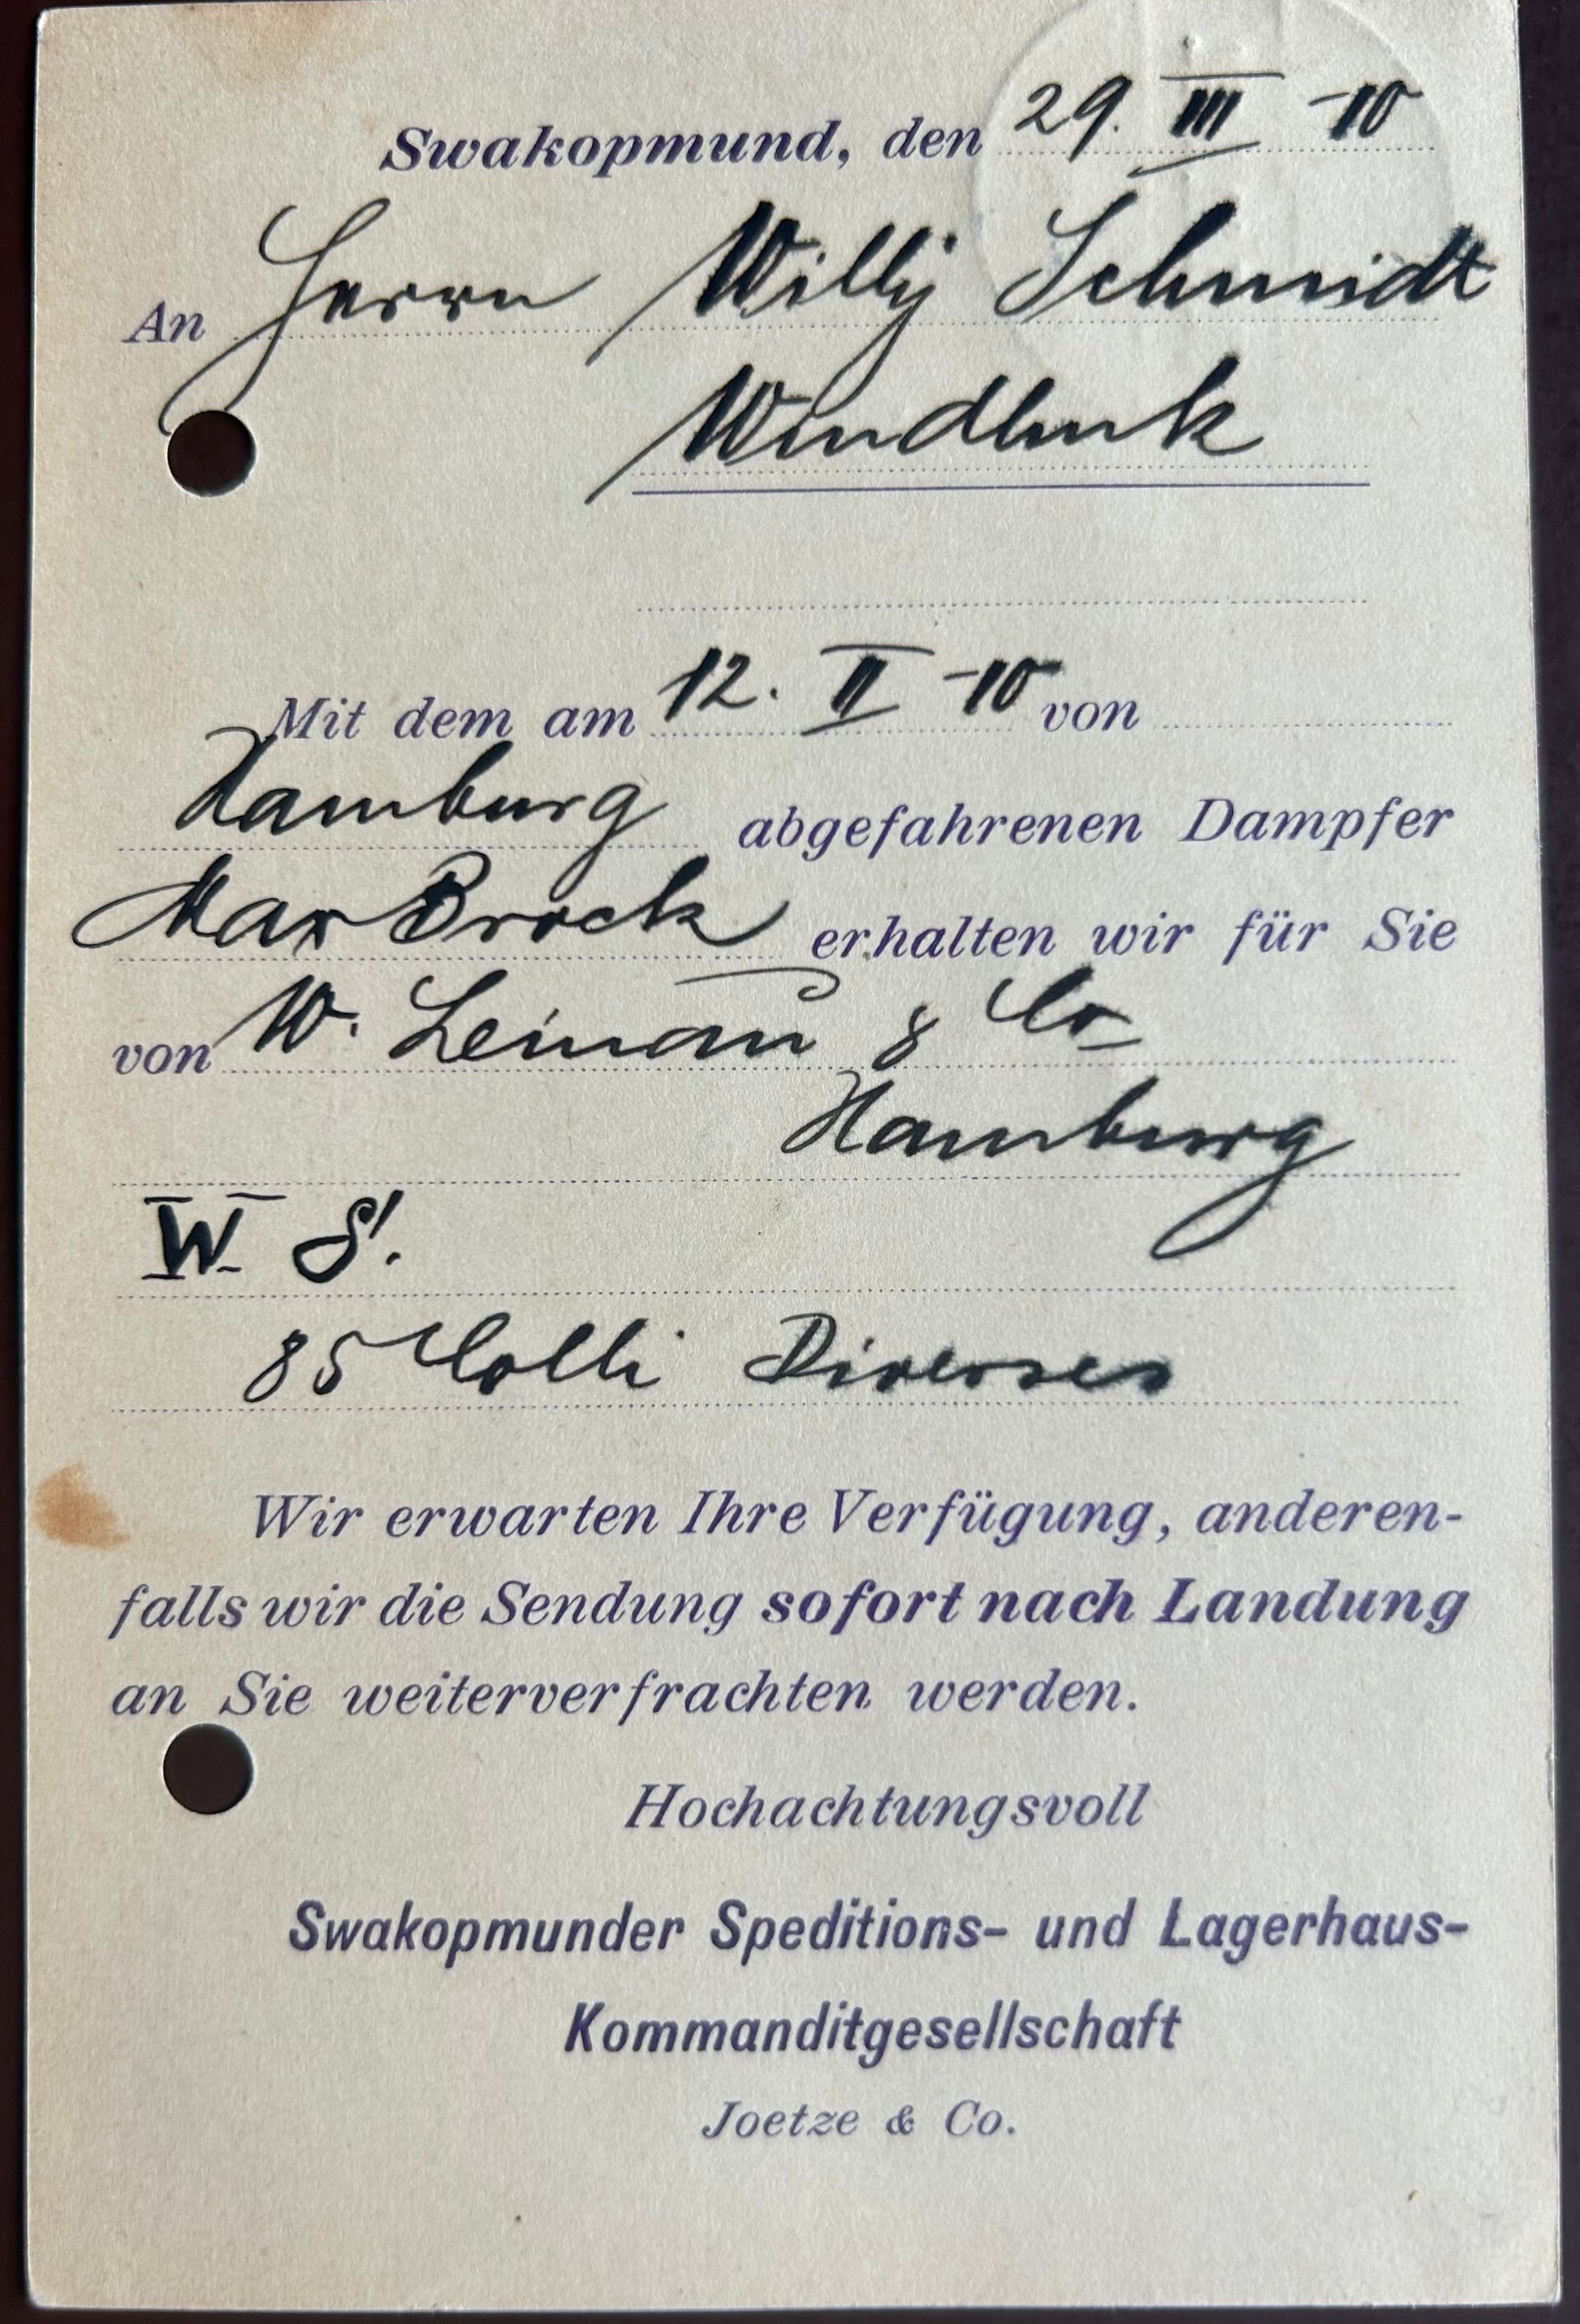 Swakopmund, den 29. III -10
An Herrn Willy Schmidt
Windhuk
Mit dem am 12. II -10 von
Hamburg abgefahrenen Dampfer
Max Brock erhalten wir für Sie
von W. & Co
Hamburg
W S.
85 Colli Diverses
Wir erwarten Ihre Verfügung, anderen-
falls wir die Sendung sofort nach Landung
an Sie weiterverfrachten werden.
Hochachtungsvoll
Swakopmunder Speditions- und Lagerhaus-
Kommanditgesellschaft
Joetze & Co.